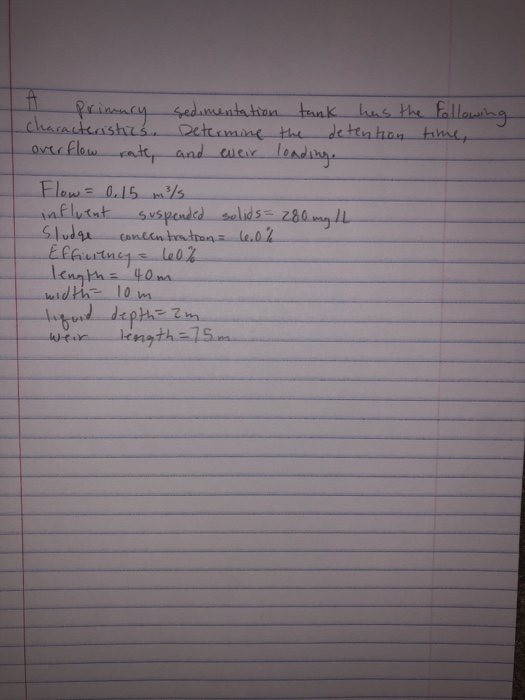 A primary sedimentation tank has the following
characteristics. Determine the detention time,
overflow rate, and weir loading.
Flow = 0.15 m³/s
influent suspended solids = 280 mg/L
Sludge concentration = 6.0%
Efficiency = 60%
length = 40m
width = 10 m
liquid depth = 2m
weir length = 75m